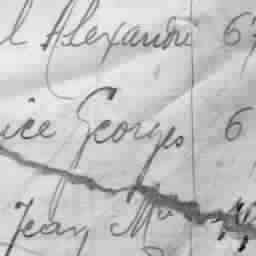 l Alexandre 67
ice Georges 6
Jean M